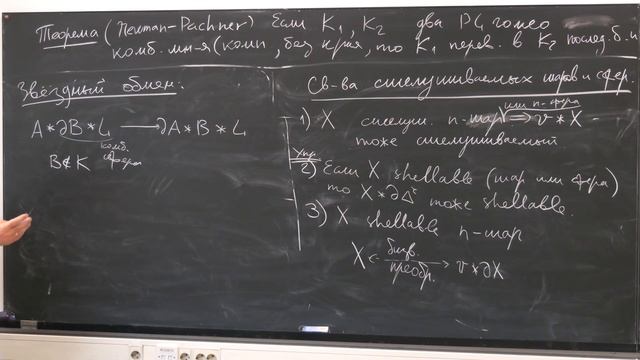 Теорема (Newman-Pachner) Если K₁, K₂ два PL гомео
комб. мн-я (комп, без края, то K₁ перев. в K₂ послед. б. и
Звёздный обмен:
A * ∂B * L → ∂A * B * L
комб. сфера
B ∉ K
Св-ва сшелушиваемых шаров и сфер
или n-сфера
1) X сшелуш. n-шар ⟹ v * X -
тоже сшелушиваемый.
Упр.
2) Если X shellable (шар или сфера)
то X * ∂Δʳ тоже shellable.
3) X shellable n-шар
X ← бизв. преобр. → v * ∂X